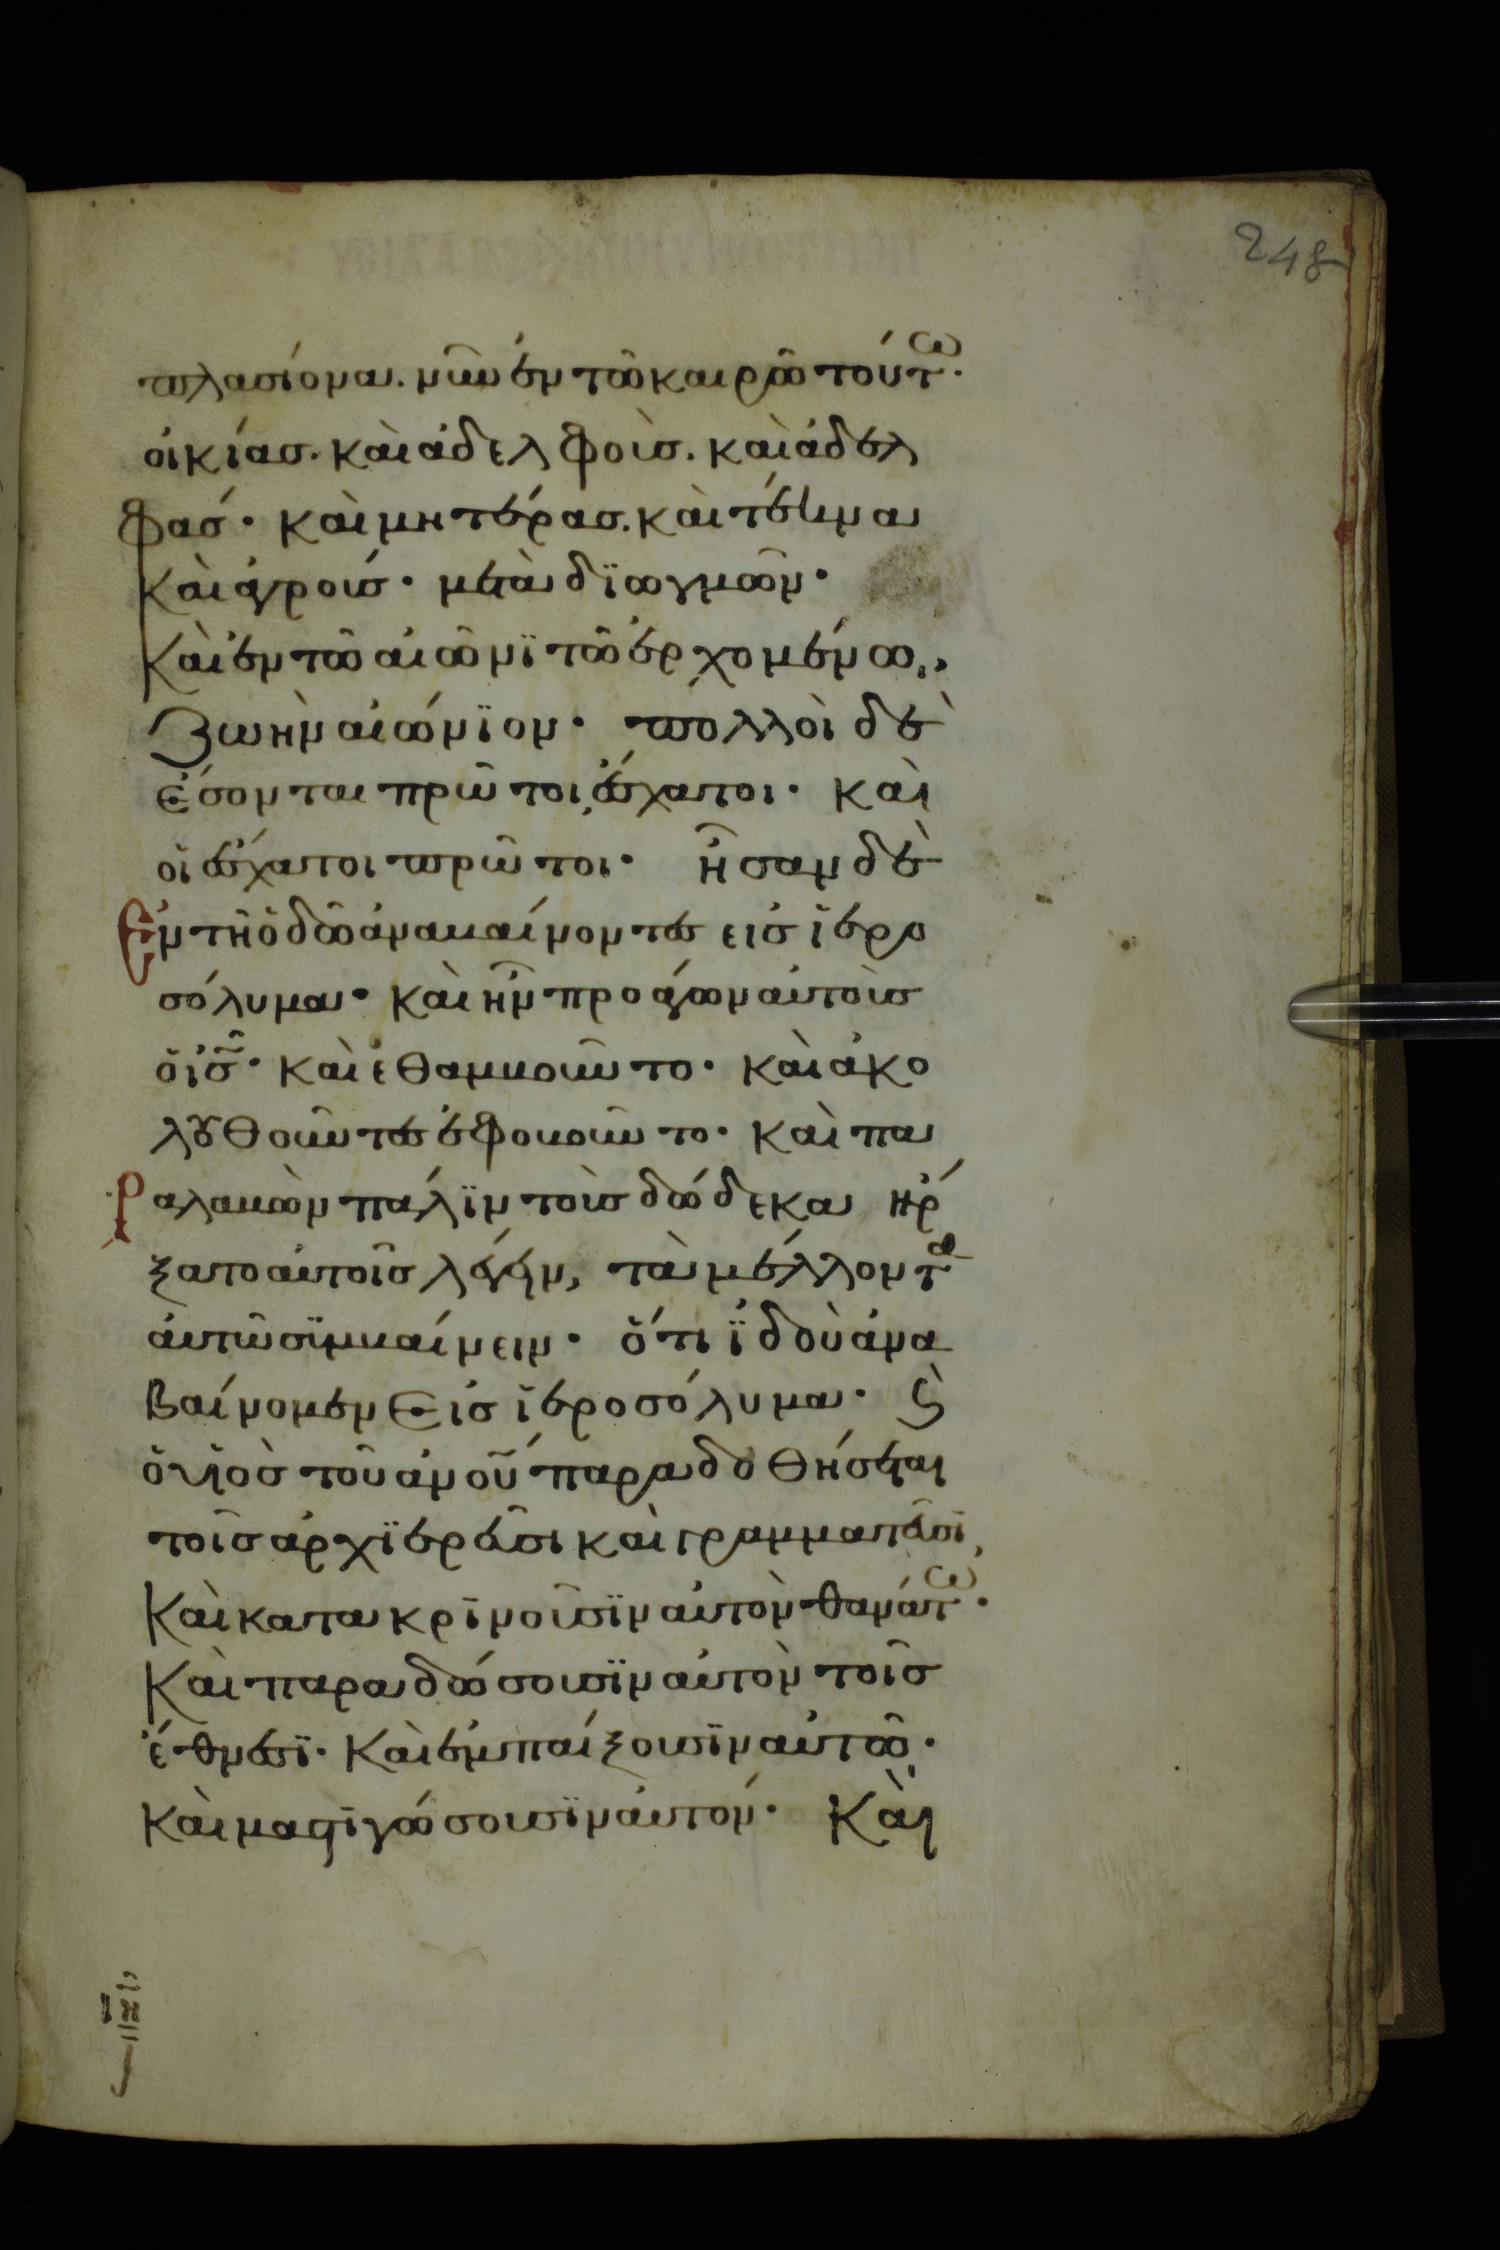 248
πλασίονα. νῦν ἐν τῶ καιρῶ τούτω.
οἰκίασ. καὶ ἀδελφοὺσ. καὶ ἀδελ
φάσ· καὶ μητέρασ. καὶ τέκνα
καὶ ἀγρούσ· μετὰ διωγμῶν·
καὶ ἐν τῶ αἰῶνϊ τῶ ἐρχομένω,
ζωὴν αἰώνϊον· πολλοὶ δὲ
ἔσονται πρῶτοι, ἔσχατοι· καὶ
οἱ ἔσχατοι πρῶτοι· ἦσαν δὲ
ἐν τῆ ὁδῶ ἀναβαίνοντεσ εἰσ ἱερο
σόλυμα· καὶ ἦν προάγων αὐτοὺσ
ὁ ἰσ̅· καὶ ἐθαμβοῦντο· καὶ ἀκο
λουθοῦντεσ ἐφοβοῦντο· καὶ πα
ραλαβὼν πάλϊν τοὺσ δώδεκα ἤρ
ξατο αὐτοῖσ λέγειν, τὰ μέλλοντα
αὐτῶ συμβαίνειν· ὅτι ϊδοὺ ἀνα
βαίνομεν εἰσ ἱεροσόλυμα· ϗ
ὁ υἱὸσ τοῦ ἀνο̅υ̅ παραδοθήσεται
τοῖσ ἀρχϊερεῦσι καὶ γραμματεῦσϊ,
καὶ κατακρϊνοῦσϊν αὐτὸν θανάτω.
καὶ παραδώσουσϊν αὐτὸν τοῖσ
ἔθνεσϊ· καὶ ἐμπαίξουσϊν αὐτῶ·
καὶ μαστϊγώσουσϊν αὐτόν· καὶ